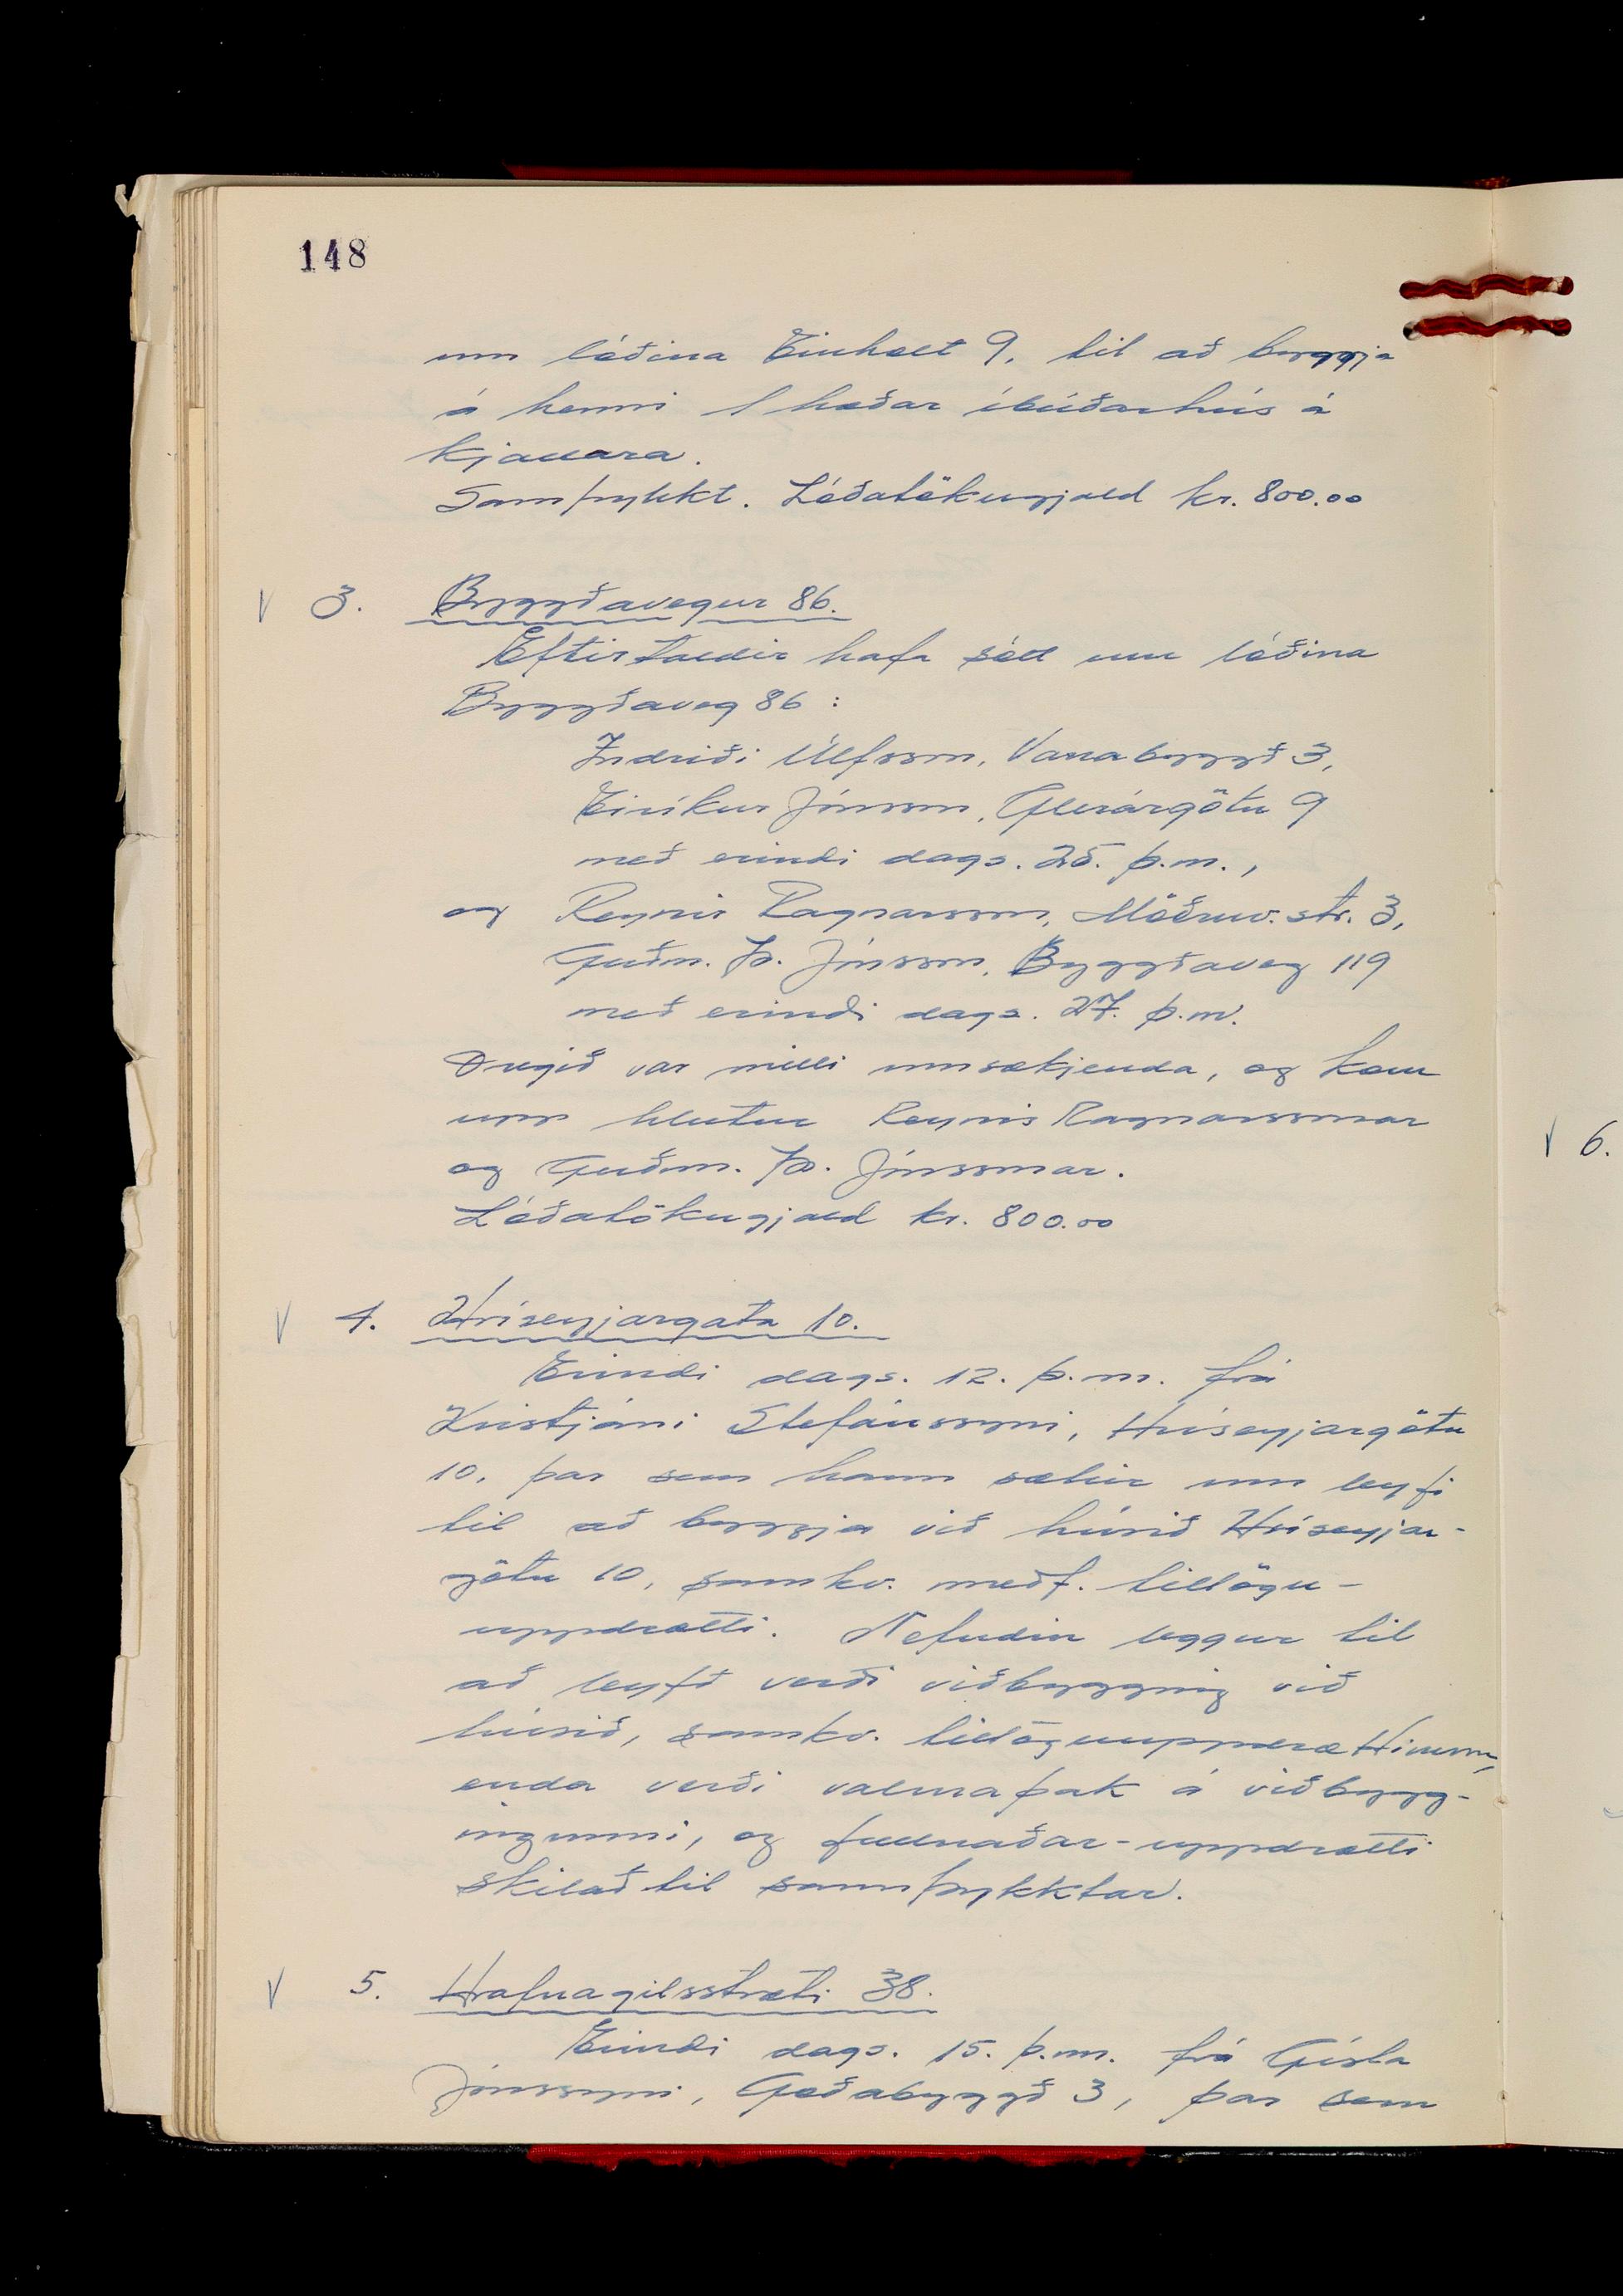 148
um lóðina Einholt 9, til að byggja
á henni 1 hæðar íbúðarhús á
kjallara.
Samþykkt. Lóðatökugjald kr. 800.00
V 3. Byggðavegur 86.
Eftirtaldir hafa sótt um lóðina
Byggðaveg 86:
Indriði Úlfsson, Vanabyggð 3,
Eiríkur Jónsson, Glerárgötu 9
með erindi dags. 25. þ.m.,
og Reynir Ragnarsson, Möðruv.str. 3,
Guðm. Þ. Jónsson, Byggðaveg 119
með erindi dags. 27. þ.m.
Dregið var milli umsækjenda, og kom
upp hlutur Reynis Ragnarssonar
og Guðm. Þ. Jónssonar.
Lóðatökugjald kr. 800.00
V 4. Hríseyjargata 10.
Erindi dags. 12. þ.m. frá
Kristjáni Stefánssyni, Hríseyjargötu
10, þar sem hann sækir um leyfi
til að byggja við húsið Hríseyjar-
götu 10, samkv. meðf. tillögu-
uppdrætti. Nefndin leggur til
að leyfð verði viðbygging við
húsið, samkv. tillöguuppdrættinum,
enda verði valmaþak á viðbygg-
ingunni, og fullnaðar-uppdrætti
skilað til samþykktar.
V 5. Hrafnagilsstræti 38.
Erindi dags. 15. þ.m. frá Gísla
Jónssyni, Goðabyggð 3, þar sem
V 6.